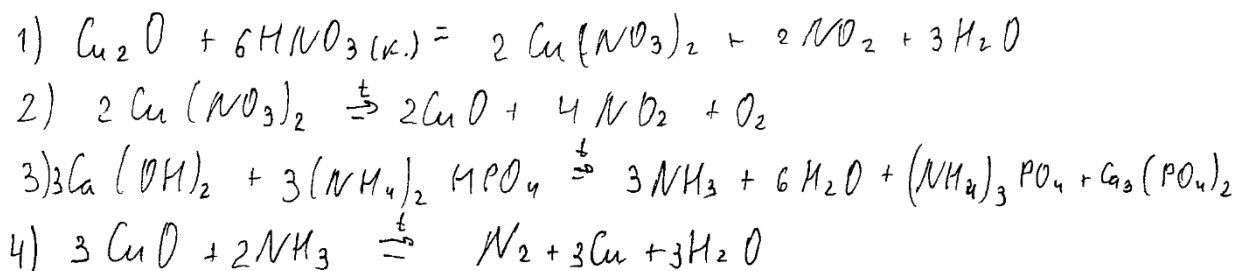 1) Cu₂O + 6HNO₃(к.) = 2Cu(NO₃)₂ + 2NO₂ + 3H₂O
2) 2Cu(NO₃)₂ =ᵗ> 2CuO + 4NO₂ + O₂
3) 3Ca(OH)₂ + 3(NH₄)₂HPO₄ =ᵗ> 3NH₃ + 6H₂O + (NH₄)₃PO₄ + Ca₃(PO₄)₂
4) 3CuO + 2NH₃ =ᵗ> N₂ + 3Cu + 3H₂O